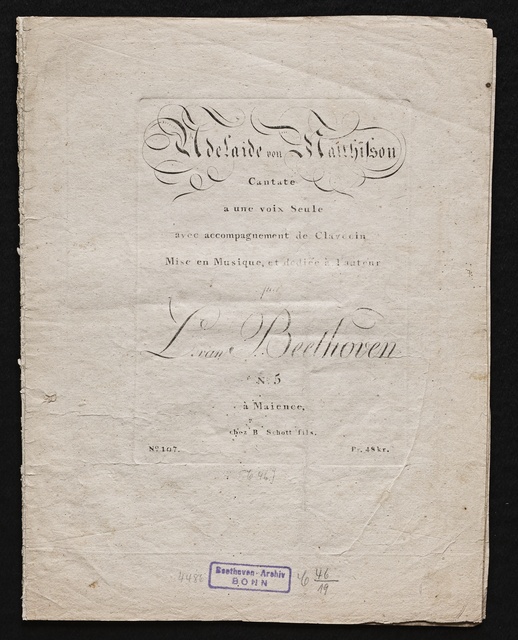 Adelaide von Matthison
Cantate
a une voix Seule
avec accompagnement de Clavecin
Mise en Musique, et dediée à l'auteur
par
L. van Beethoven
N. 5
à Maience,
chez B. Schott fils.
No. 107. Pr. 48 kr.
4482
Beethoven-Archiv
BONN
C 46
19